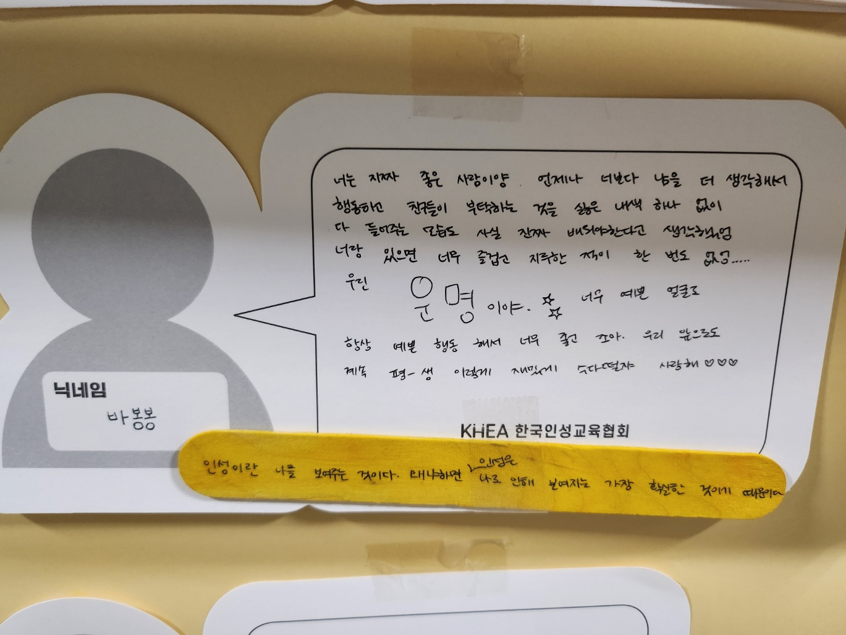 너는 진짜 좋은 사람이양. 언제나 너보다 남을 더 생각해서
행동하고 친구들이 부탁하는 것을 싫은 내색 하나 없이
다 들어주는 모습도 사실 진짜 배워야한다고 생각해
너랑 있으면 너무 즐겁고 지루한 적이 한 번도 없음.....
우린 운명 이야. 너무 예쁜 얼굴로
항상 예쁜 행동 해서 너무 좋고 조아. 우리 앞으로도
계속 평-생 이렇게 재밌게 수다떨자 사랑해 ♡♡♡
닉네임
바봉봉
KHEA 한국인성교육협회
인성이란 나를 보여주는 것이다. 왜냐하면 인성은
나로 인해 보여지는 가장 확실한 것이기 때문이다